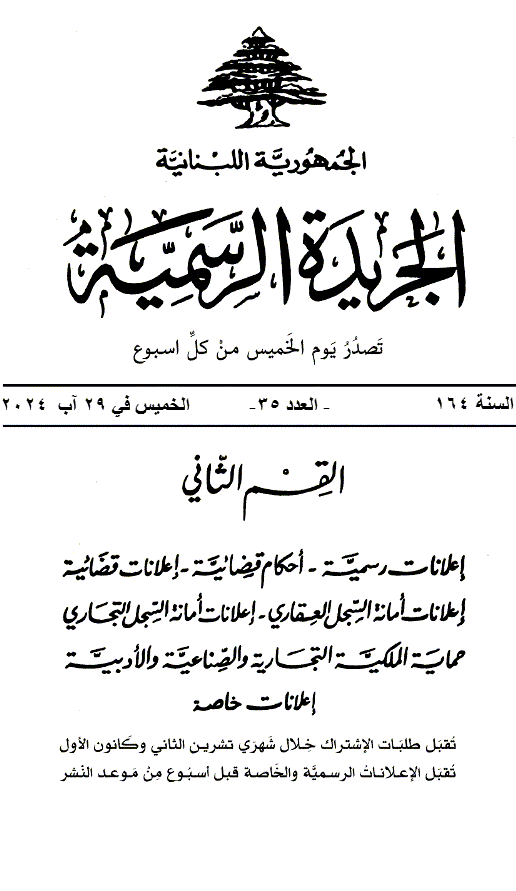 الجمهوريَّة اللبْنانيَّة
الجَريدَة الرسَّمِيَّة
تَصدُرُ يَوم الخَميس منْ كلِّ اسبوع
السنة ١٦٤ - العدد ٣٥- الخميس في ٢٩ آب ٢٠٢٤
القِسْم الثّاني
إعلانات رسميَّة - أحكام قضائيَّة - إعلانات قضائية
إعلانات أمانة السِّجل العِقاري - إعلانات أمانة السِّجل التجَاري
حماية الملكيَّة التجَارية والصِّناعيَّة والأدبيَّة
إعلانات خاصة
تُقبَل طلبَات الإشتراك خِلال شَهرَي تشرين الثاني وكَانون الأول
تُقبَل الإعلاناتُ الرسميَّة والخَاصة قبل أسبُوع مِنْ مَوعد النَشر